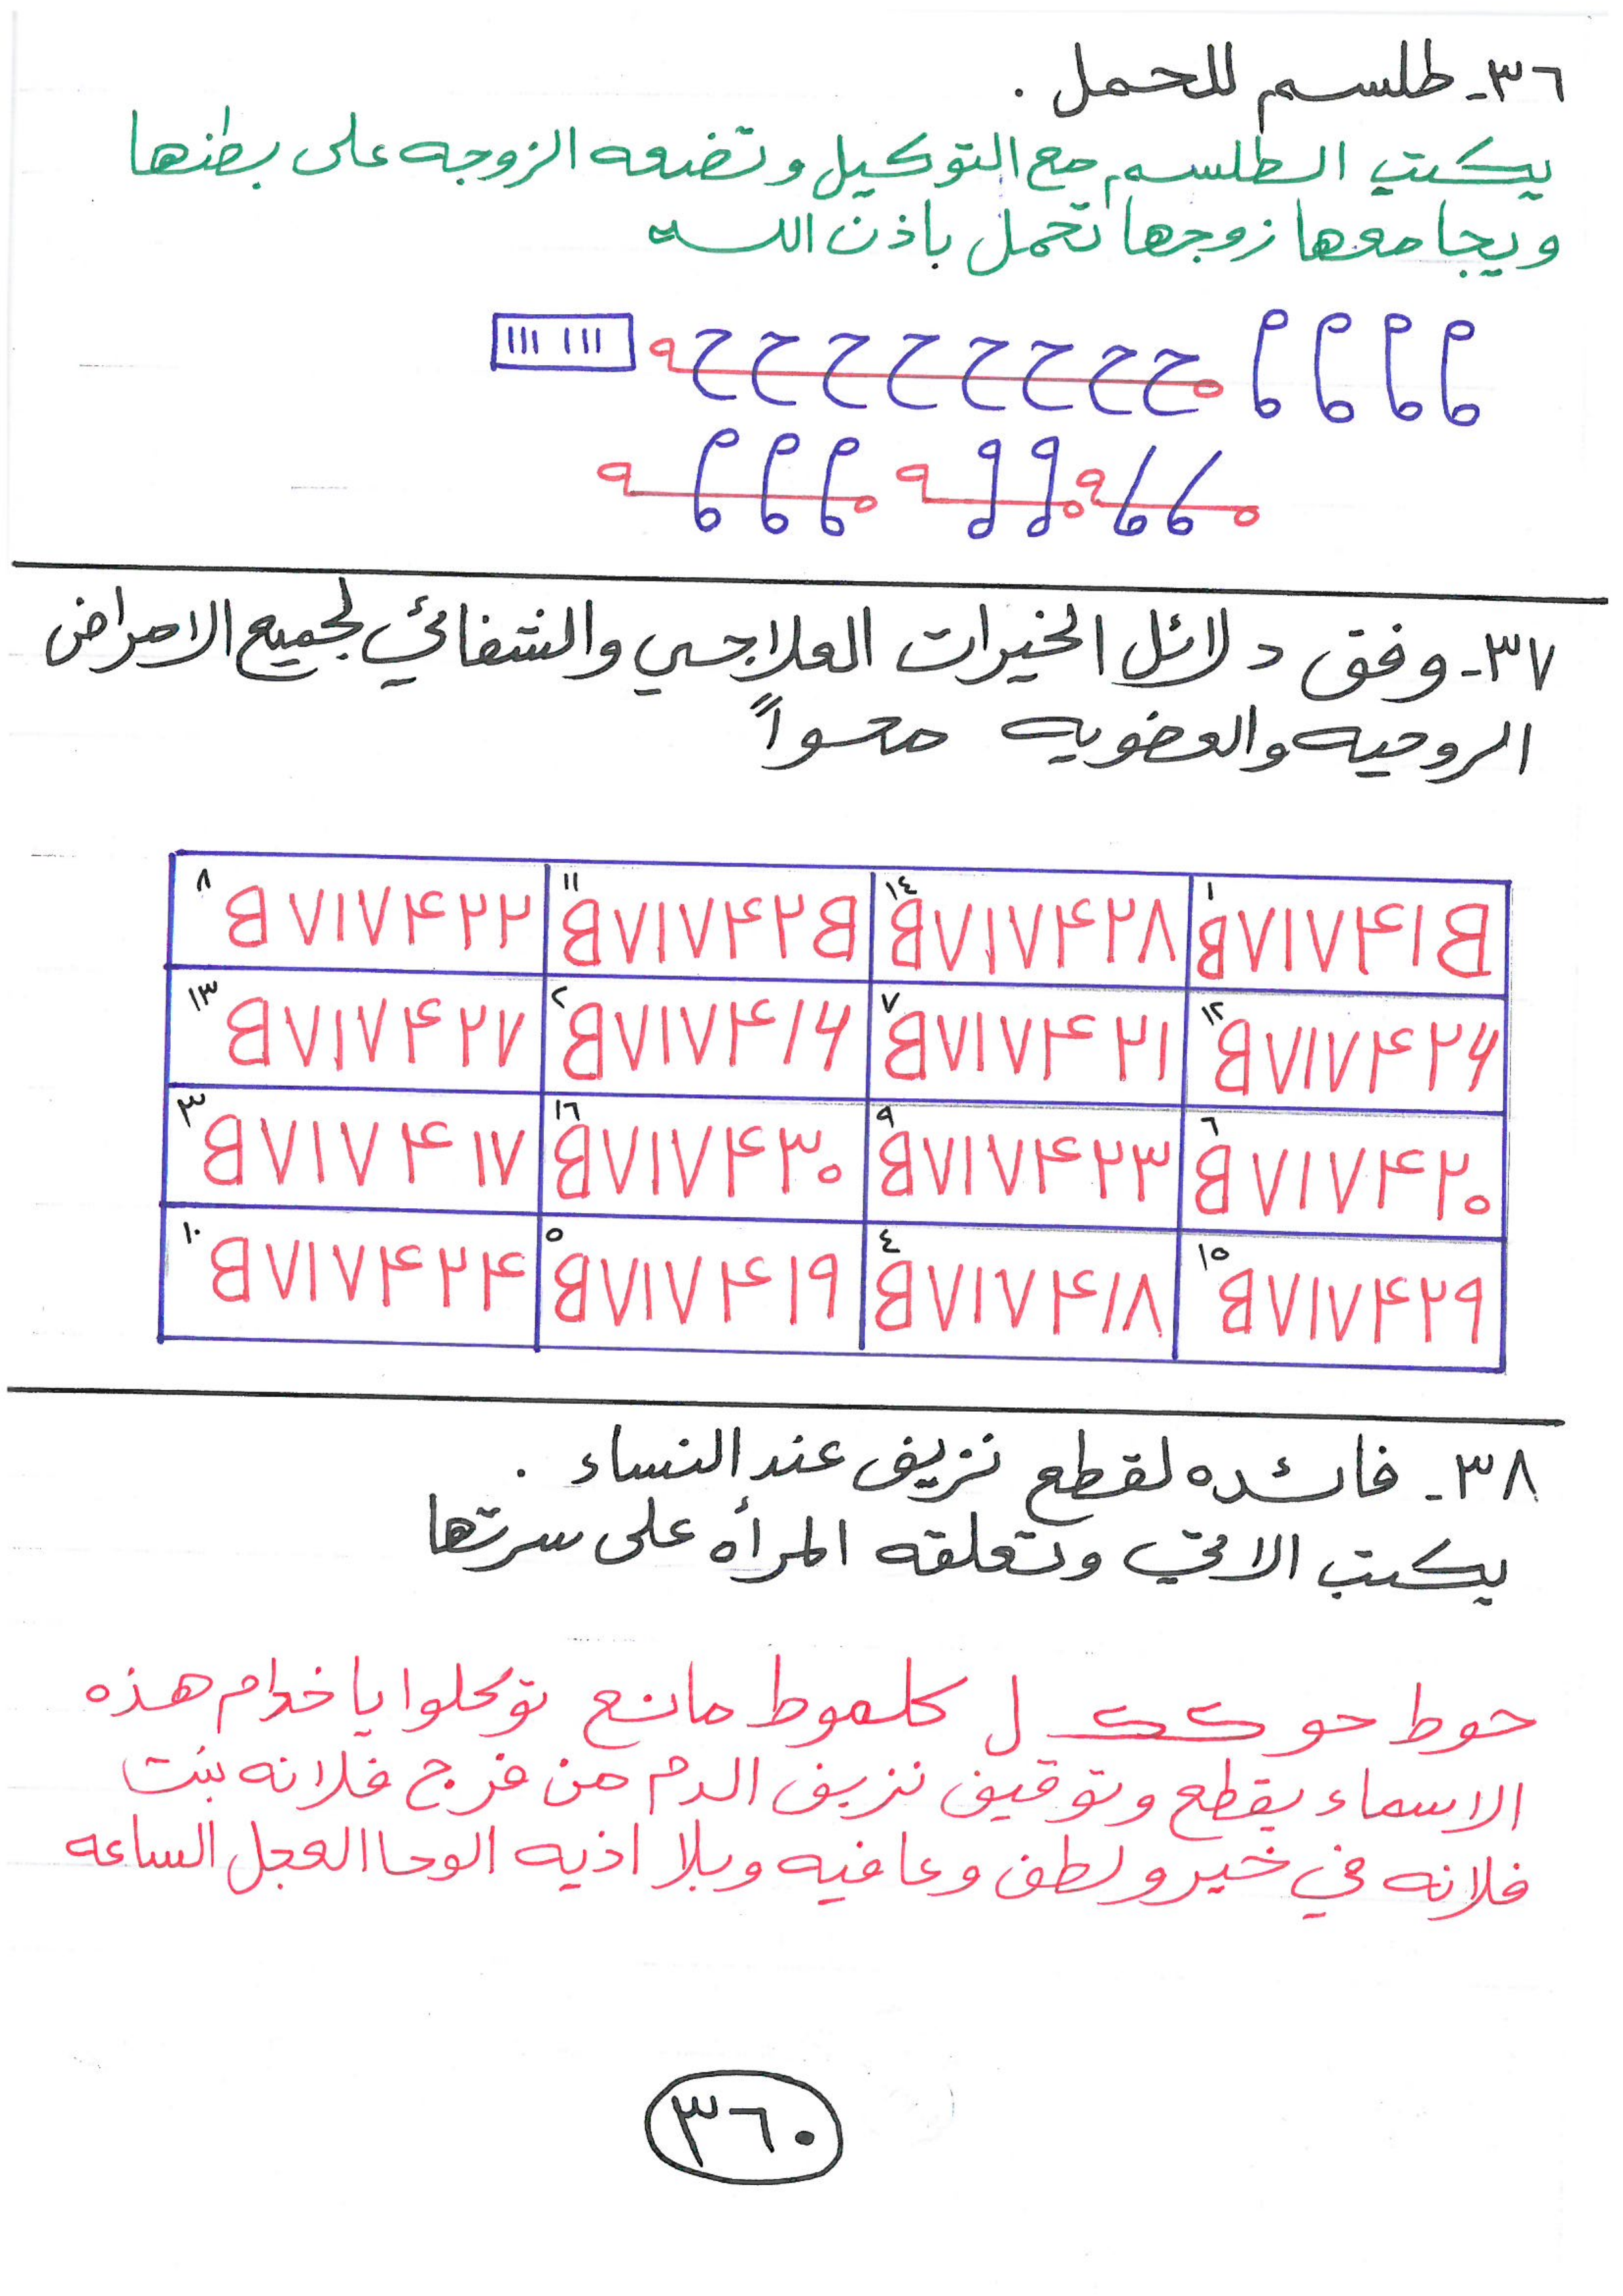 ٣٦- طلسم للحمل .
يكتب الطلسم مع التوكيل وتضعه الزوجه على بطنها
ويجامعها زوجها تحمل باذن الله
ححححححححح
٣٧- وفق دلائل الخيرات العلاجي والشفائي لجميع الامراض
الروحيه والعضويه محواً
١ B٧١٧۴١B ١٤ B٧١٧۴٢٨ ١١ B٧١٧۴٢B ٨ B٧١٧۴٢٢
١٢ B٧١٧۴٢۶ ٧ B٧١٧۴٢١ ٢ B٧١٧۴١۶ ١٣ B٧١٧۴٢٧
٦ B٧١٧۴٢٠ ٩ B٧١٧۴٢٣ ١٦ B٧١٧۴٣٠ ٣ B٧١٧۴١٧
١٥ B٧١٧۴٢٩ ٤ B٧١٧۴١٨ ٥ B٧١٧۴١٩ ١٠ B٧١٧۴٢۴
٣٨- فائده لقطع نزيف عند النساء .
يكتب الاتي وتعلقه المرأه على سرتها
حوط حو ككـ ل كلموط مانع توكلوا يا خدام هذه
الاسماء بقطع وتوقيف نزيف الدم من فرج فلانه بنت
فلانه في خير ولطف وعافيه وبلا اذيه الوحا العجل الساعه
٣٦٠